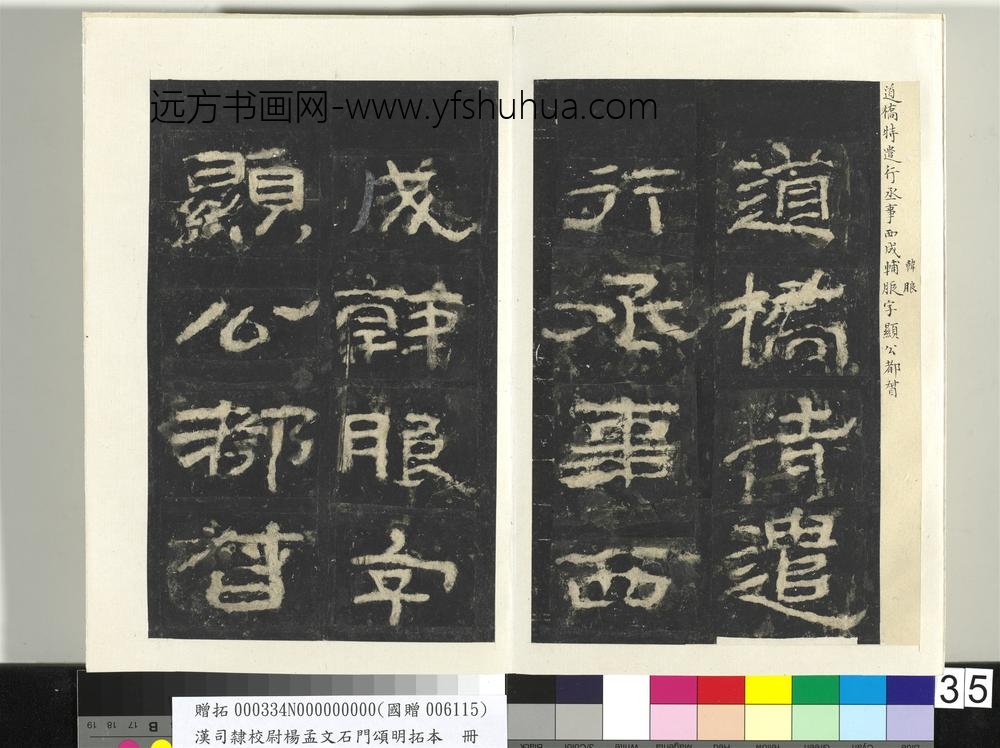 远方书画网-www.yfshuhua.com
道橋特遣行丞事西成輔服字顯公都督
韓服
道橋特遣
行丞事西
成韓服字
顯公都督
35
贈拓 000334N000000000(國贈 006115)
漢司隸校尉楊孟文石門頌明拓本 冊
19 18 17 B
Black
3/Color
White
Magenta
Red
Yellow
Green
Cyan
Blue